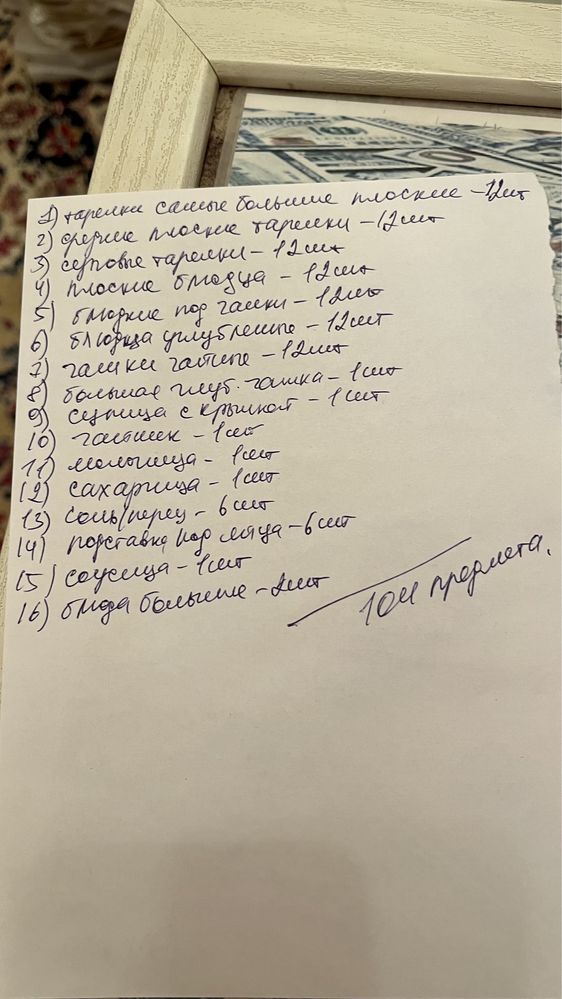 1) тарелки самые большие плоские - 12шт
2) средние плоские тарелки - 12шт
3) суповые тарелки - 12шт
4) плоские блюдца - 12шт
5) блюдкие под чашки - 12шт
6) блюдца углубленные - 12шт
7) чашки чайные - 12шт
8) большая глуб. чашка - 1шт
9) супница с крышкой - 1шт
10) чайник - 1шт
11) молочница - 1шт
12) сахарница - 1шт
13) соль/перец - 6шт
14) подставка под яйца - 6шт
15) соусница - 1шт
16) блюда большие - 2шт
104 предмета.